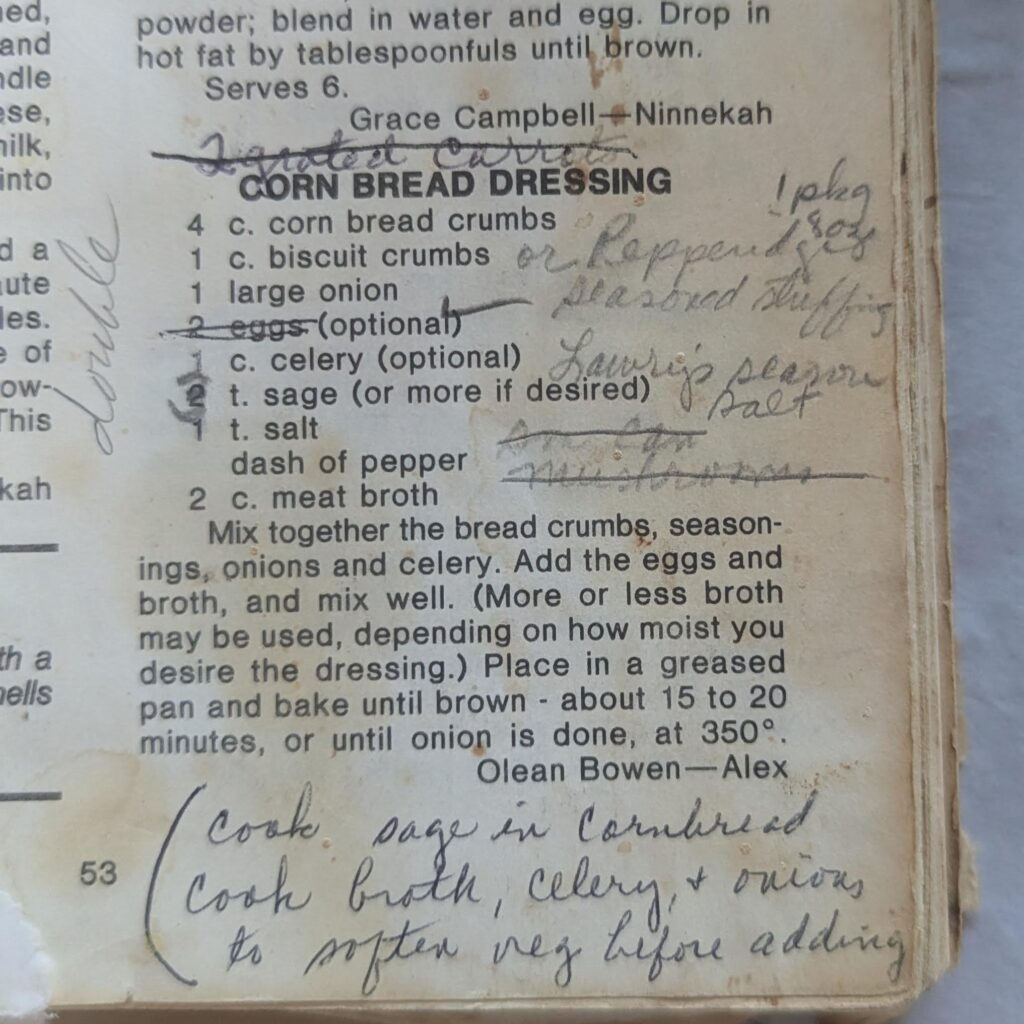 ned,
and
ndle
ese,
milk,
into
d a
aute
les.
e of
ow-
This
kah
th a
nells
double
powder; blend in water and egg. Drop in
hot fat by tablespoonfuls until brown.
Serves 6.
Grace Campbell—Ninnekah
2 grated carrots
CORN BREAD DRESSING
4 c. corn bread crumbs
1 pkg
8 oz
1 c. biscuit crumbs or Pepperidges
1 large onion seasoned stuffing
2 eggs (optional)
1 c. celery (optional) Lawry's season
2 t. sage (or more if desired) salt
1 t. salt sm can
dash of pepper mushrooms
2 c. meat broth
Mix together the bread crumbs, season-
ings, onions and celery. Add the eggs and
broth, and mix well. (More or less broth
may be used, depending on how moist you
desire the dressing.) Place in a greased
pan and bake until brown - about 15 to 20
minutes, or until onion is done, at 350°.
Olean Bowen—Alex
(cook sage in cornbread
cook broth, celery, + onions
to soften veg before adding
53